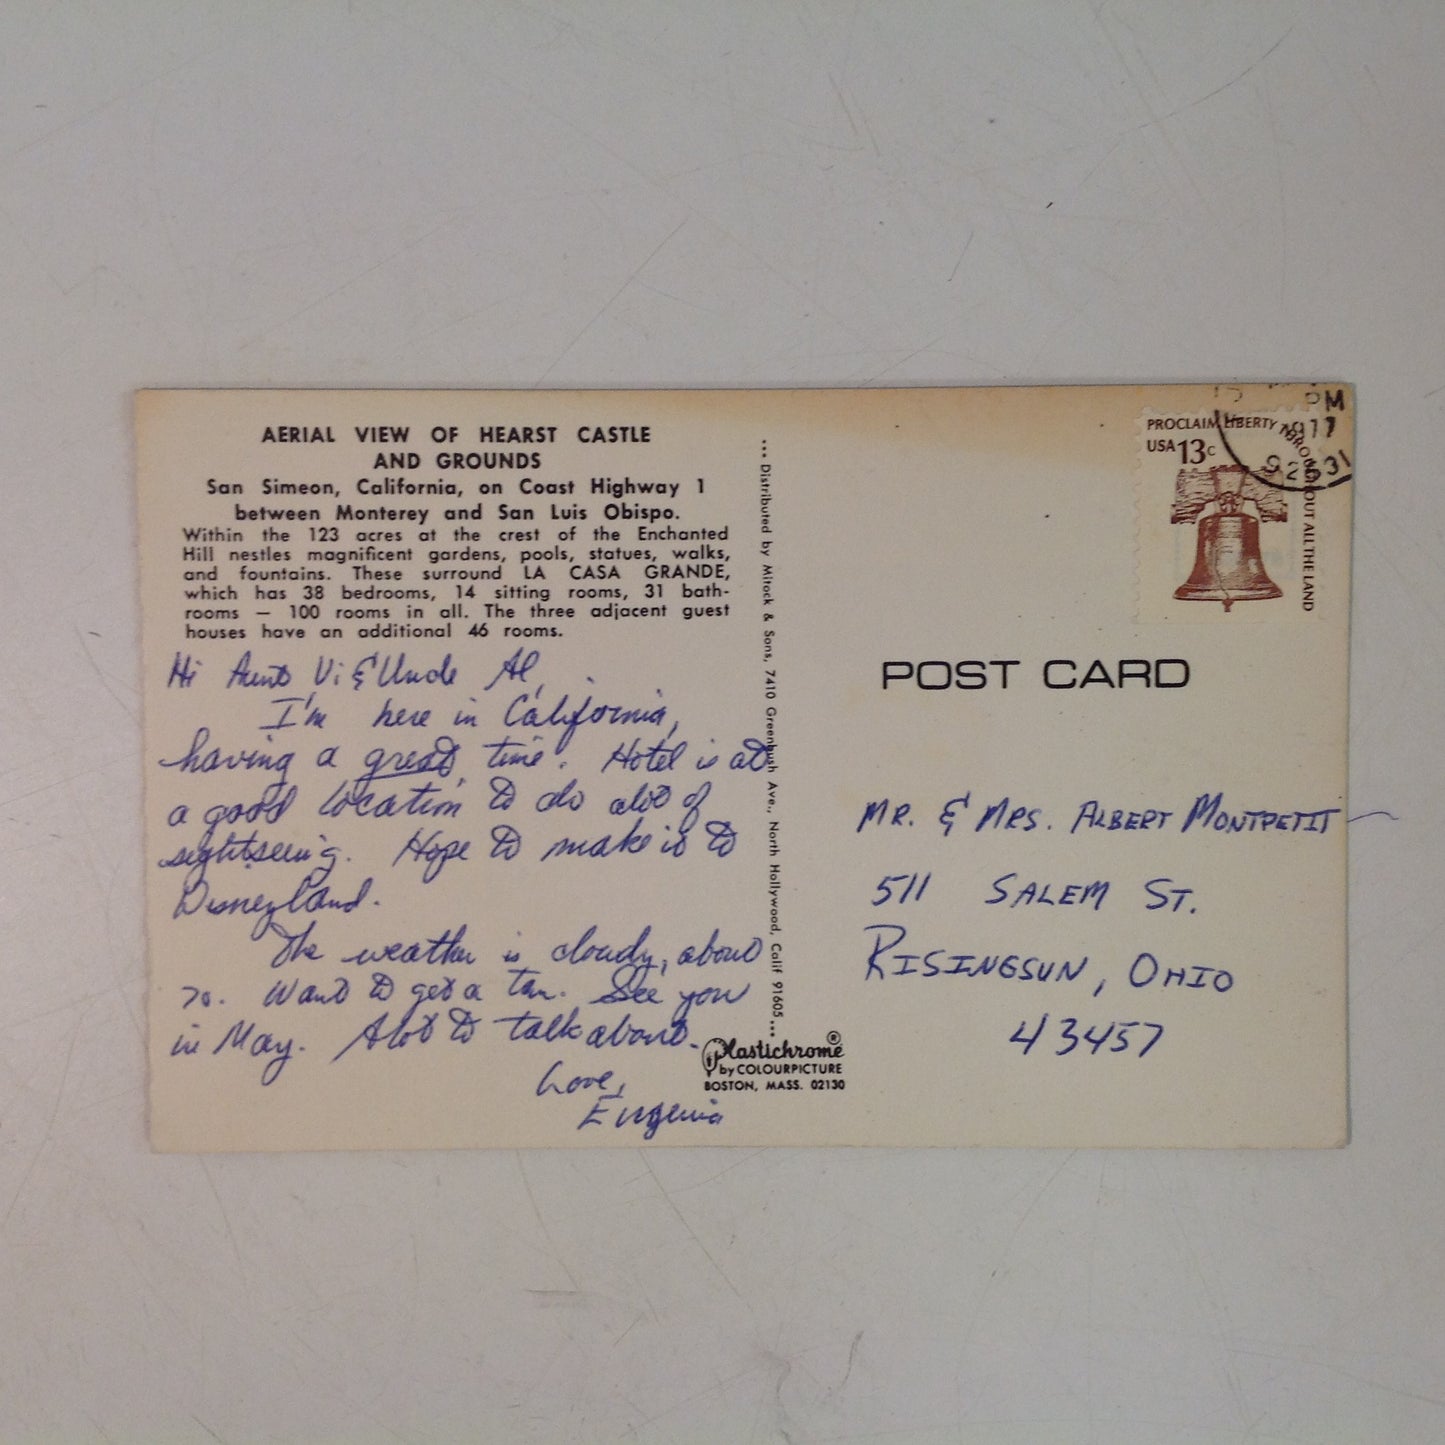 AERIAL VIEW OF HEARST CASTLE
AND GROUNDS
San Simeon, California, on Coast Highway 1
between Monterey and San Luis Obispo.
Within the 123 acres at the crest of the Enchanted
Hill nestles magnificent gardens, pools, statues, walks,
and fountains. These surround LA CASA GRANDE,
which has 38 bedrooms, 14 sitting rooms, 31 bath-
rooms — 100 rooms in all. The three adjacent guest
houses have an additional 46 rooms.
Hi Aunt Vi & Uncle Al,
I'm here in California,
having a great time. Hotel is at
a good location to do alot of
sightseeing. Hope to make it to
Disneyland.
The weather is cloudy, about
70. Want to get a tan. See you
in May. Alot to talk about.
Love,
Eugenia
... Distributed by Mitock & Sons, 7410 Greenbush Ave., North Hollywood, Calif 91605 ...
Plastichrome®
by COLOURPICTURE
BOSTON, MASS. 02130
PROCLAIM LIBERTY THROUGHOUT ALL THE LAND
USA 13c
PM
1977
POST CARD
MR. & MRS. ALBERT MONTPETIT
511 SALEM ST.
RISINGSUN, OHIO
43457